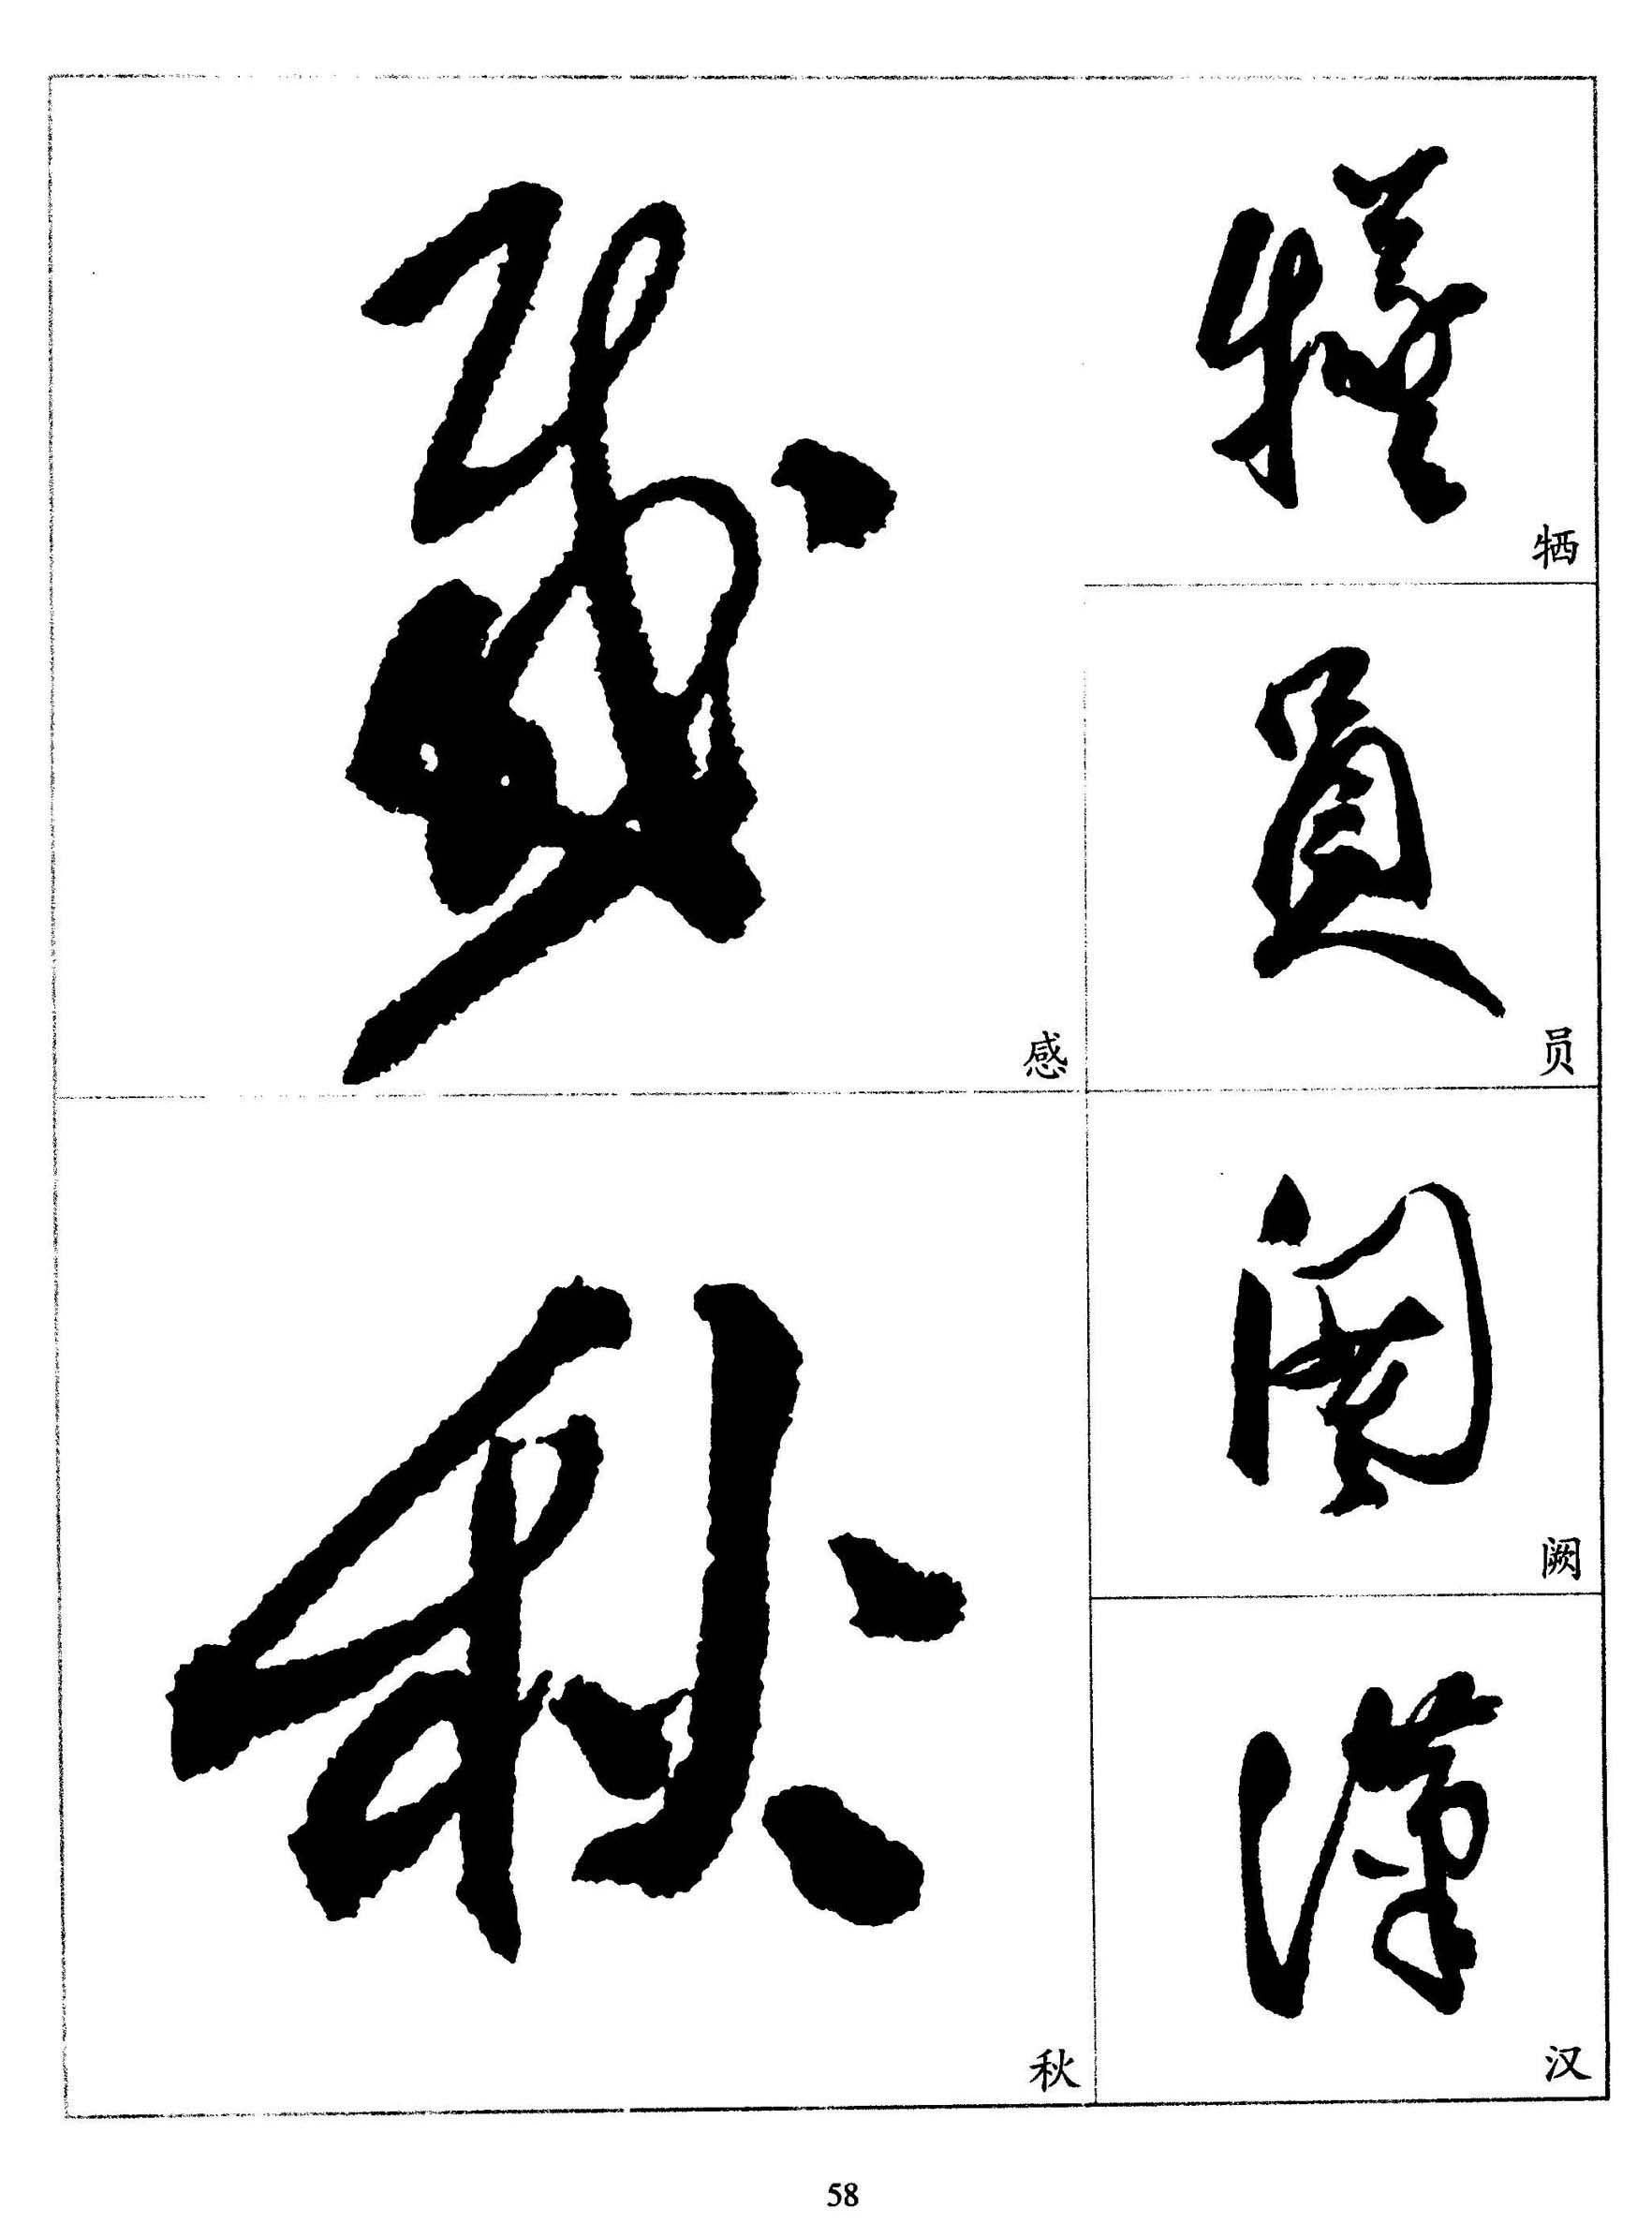 牺
员
阙
汉
感
秋
58